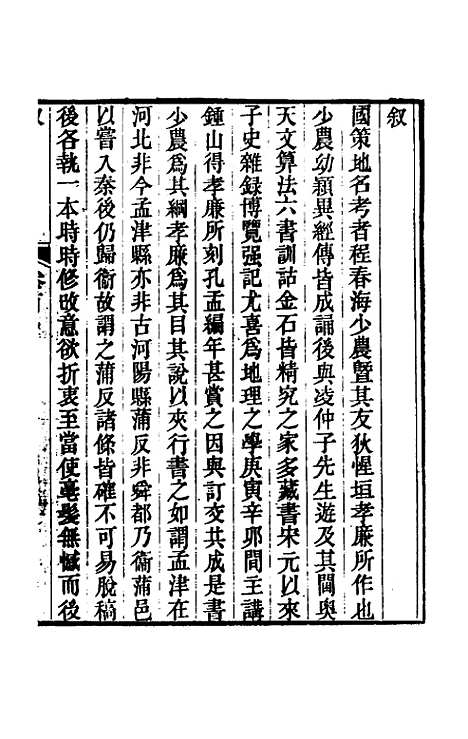 叙
國策地名考者程春海少農暨其友狄惺垣孝廉所作也
少農幼穎異經傳皆成誦後與凌仲子先生遊及其閫奧
天文算法六書訓詁金石皆精究之家多藏書宋元以來
子史雜録博覽强記尤喜爲地理之學庚寅辛卯間主講
鍾山得孝廉所刻孔孟編年甚賞之因與訂交共成是書
少農爲其綱孝廉爲其目其說以夾行書之如謂孟津在
河北非今孟津縣亦非古河陽縣蒲反非舜都乃衞蒲邑
以嘗入秦後仍歸衞故謂之蒲反諸條皆確不可易脫稿
後各執一本時時修改意欲折衷至當使毫髮無憾而後